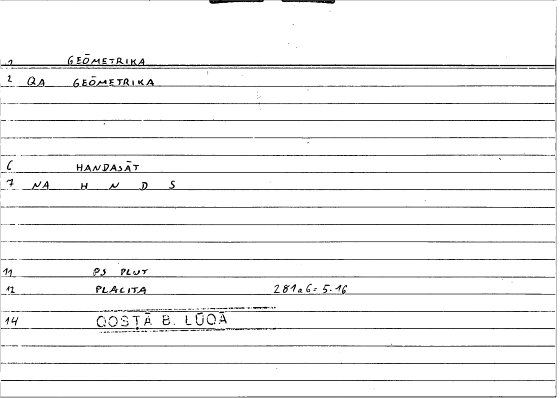 1 GEŌMETRIKA
2 QA GEŌMETRIKA
6 HANDASĀT
7 NA H N D S
11 PS PLUT
12 PLACITA 281a6 = 5.16
14 QOSṬĀ B. LŪQĀ